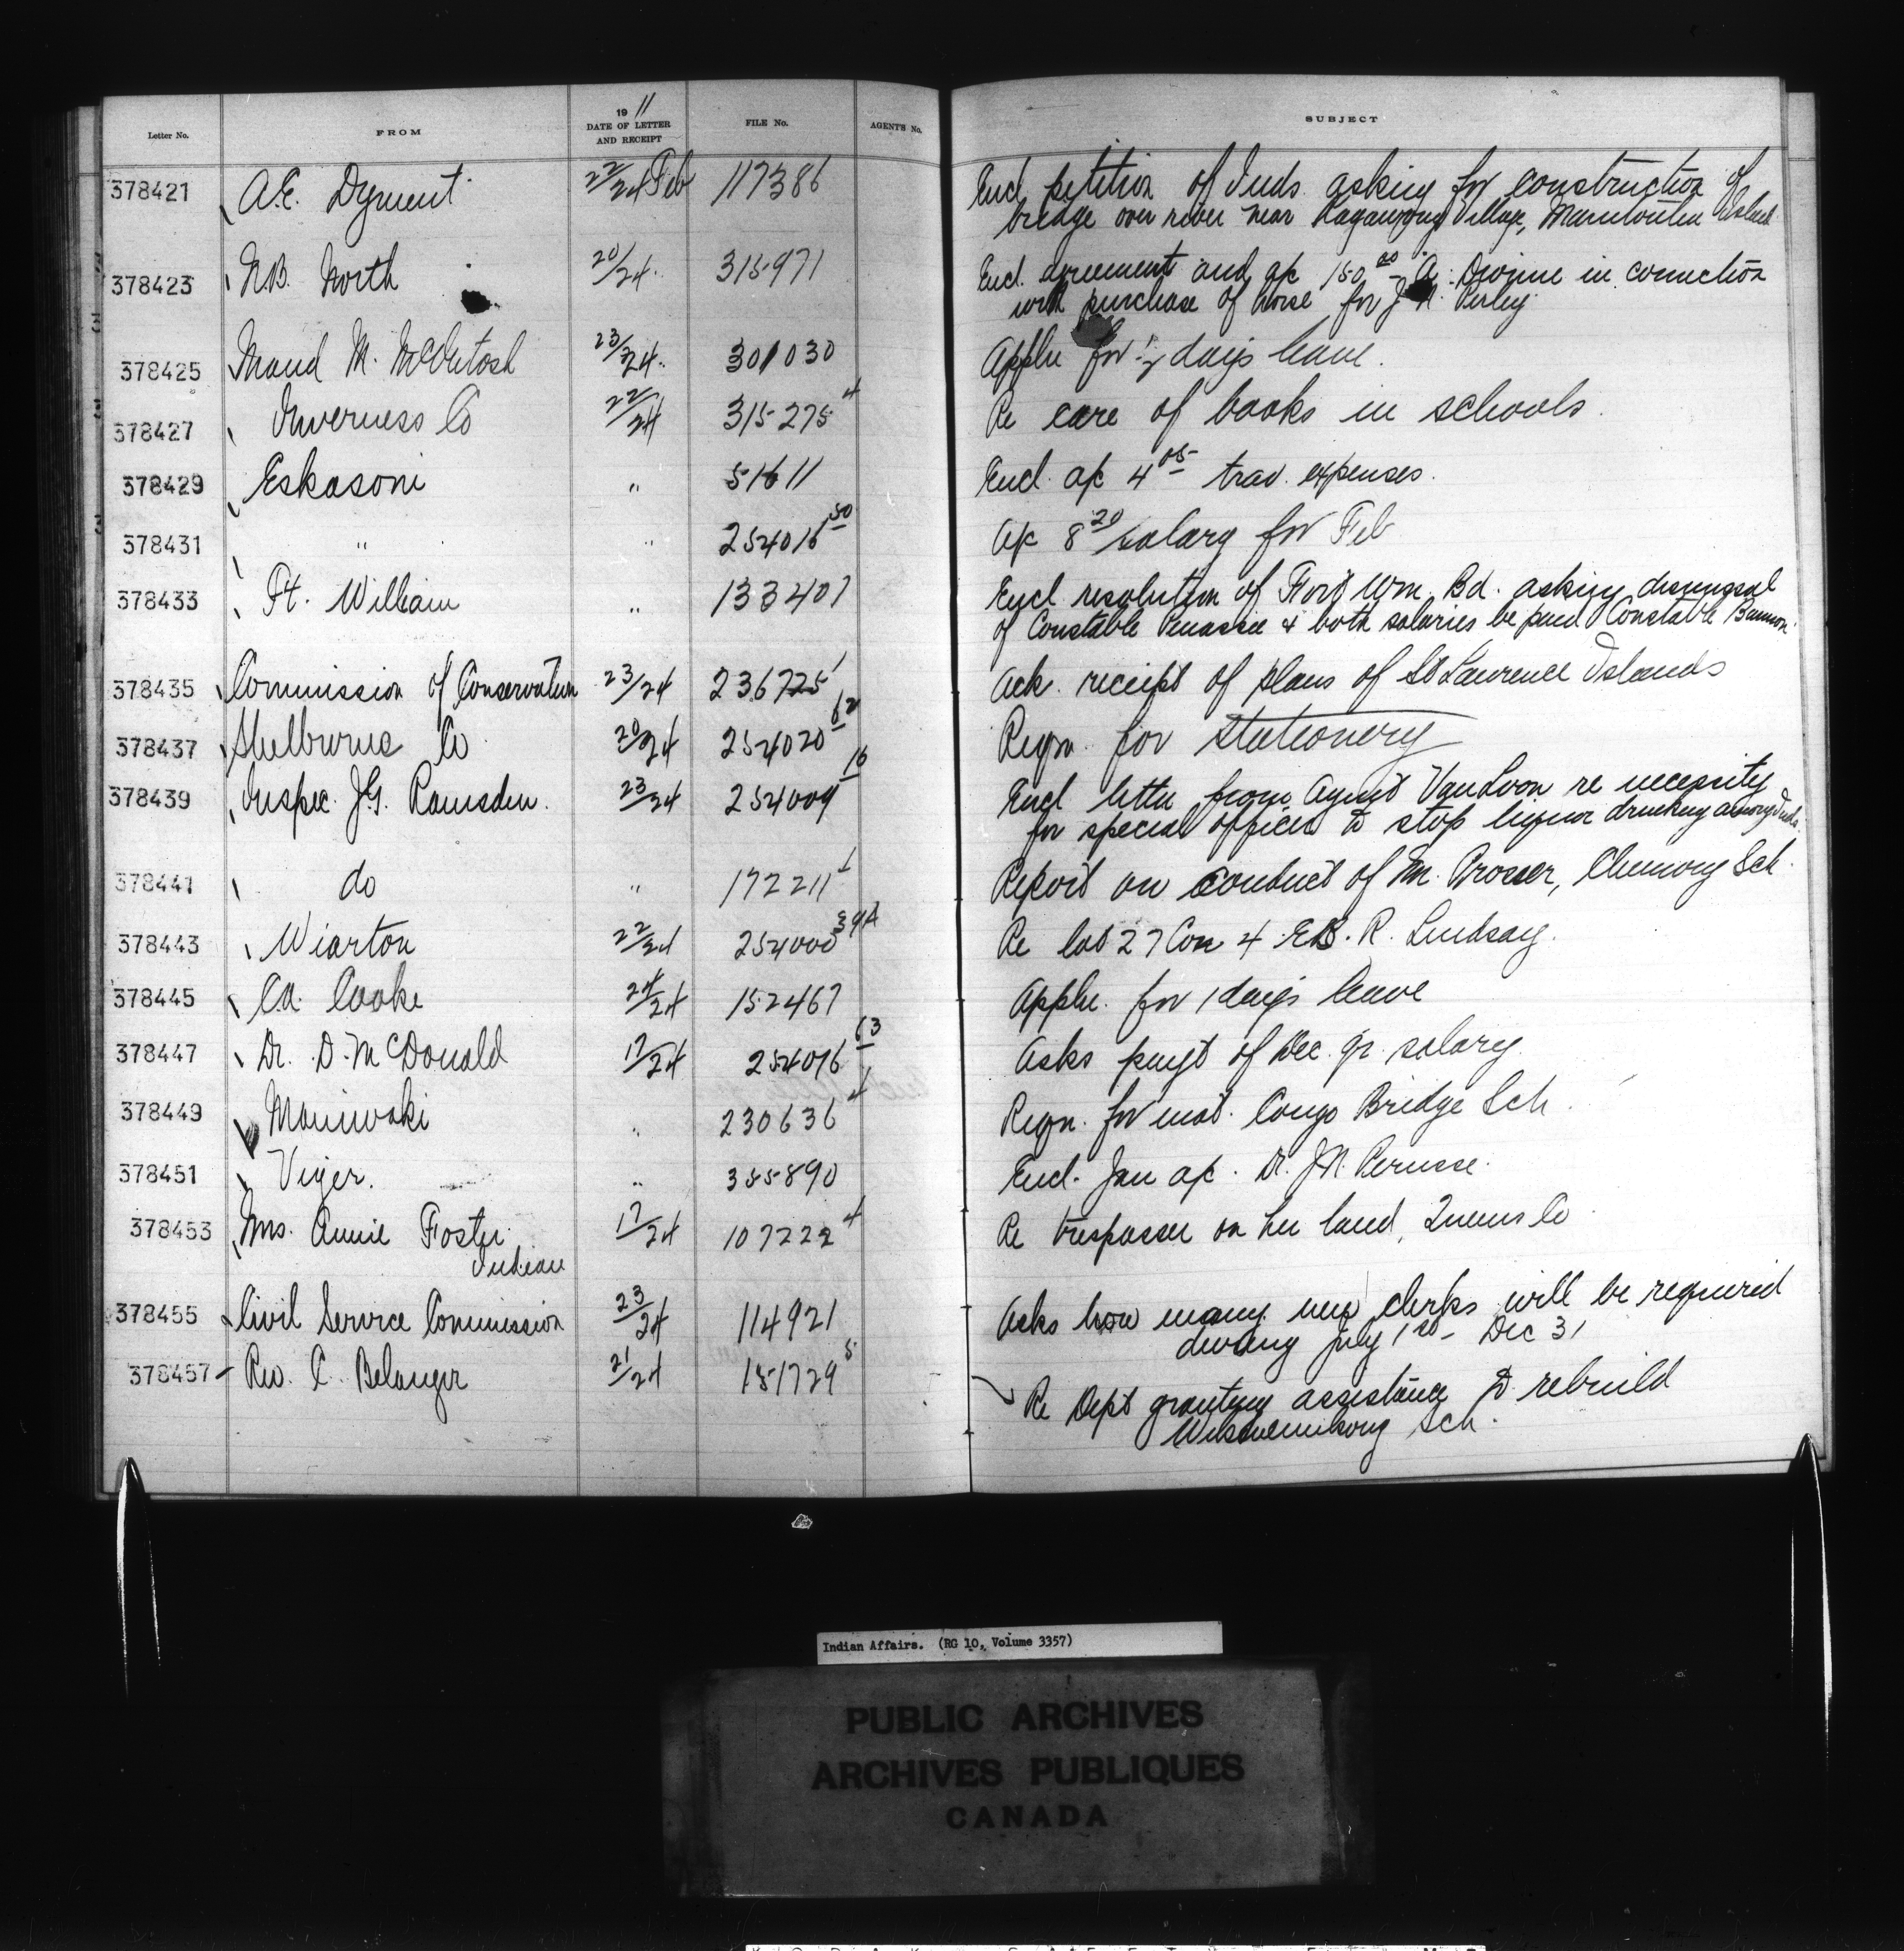 Letter No. FROM 19 11 DATE OF LETTER AND RECEIPT FILE No. AGENT'S No. SUBJECT
378421 A.E. Dyment 22/24 Feb 117386 Encl petition of Inds. asking for construction of
bridge over river near Kagawong Village, Manitoulin Island
378423 N.B. North 20/24 315971 Encl. agreement and a/c 150.00 A. Devine in connection
with purchase of horse for J. N. Perley
378425 Maud M. McIntosh 23/24 301030 Appln for ½ days leave.
378427 Inverness Co 22/24 315275 4 Re care of books in schools.
378429 Eskasoni " 51611 Encl. a/c 4 05 trav. expenses.
378431 " " 254016 50 a/c 8 20 salary for Feb
378433 Ft. William " 133407 Encl resolution of Fort Wm. Bd. asking dismissal
of Constable Penassie & both salaries be paid Constable Bannon
378435 Commission of Conservation 23/24 236725 1 Ack. receipt of plans of St Lawrence Islands
378437 Shelburne Co 20/24 254020 62 Reqn. for Stationery
378439 Inspec. J.G. Ramsden. 23/24 254009 16 Encl letter from Agent VanLoon re necessity
for special officer to stop liquor drinking among Inds.
378441 do " 172211 1 Report on conduct of Mr. Prosser, Chemong Sch.
378443 Wiarton 22/24 254000 39A Re lot 27 Con 4 E.B.R. Lindsay.
378445 C.A. Cooke 24/24 152467 Appln. for 1 days leave
378447 Dr. D. McDonald 17/24 254016 63 Asks paymt of Dec. qr. salary
378449 Maniwaki " 230636 4 Reqn. for mat. Congo Bridge Sch.
378451 Viger. " 355890 Encl. Jan a/c. Dr. J.N. Perusse.
378453 Mrs. Annie Foster 17/24 107222 4 Re trespasser on her land, Queens Co
Indian
378455 Civil Service Commission 23/24 114921 Asks how many new clerks will be required
during July 1st - Dec 31
378457 Rev. C. Belanger 21/24 151729 5 Re Dept granting assistance to rebuild
Wikwemikong Sch.
Indian Affairs. (RG 10, Volume 3357)
PUBLIC ARCHIVES
ARCHIVES PUBLIQUES
CANADA